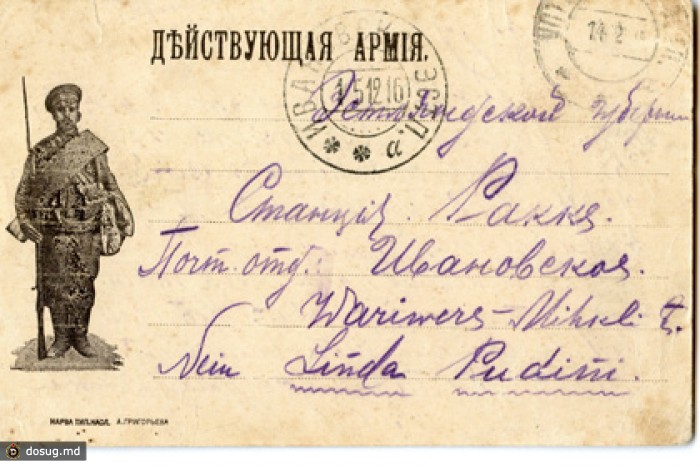 ДѢЙСТВУЮЩАЯ АРМІЯ.
15 12 16
а
Эстляндской губернии
Станція Ракке.
Почт. отд: Ивановское.
Wariwers-Mihkli t.
Neiu Linda Pudini.
НАРВА ТИП. НАСЛ. А. ГРИГОРЬЕВА
dosug.md